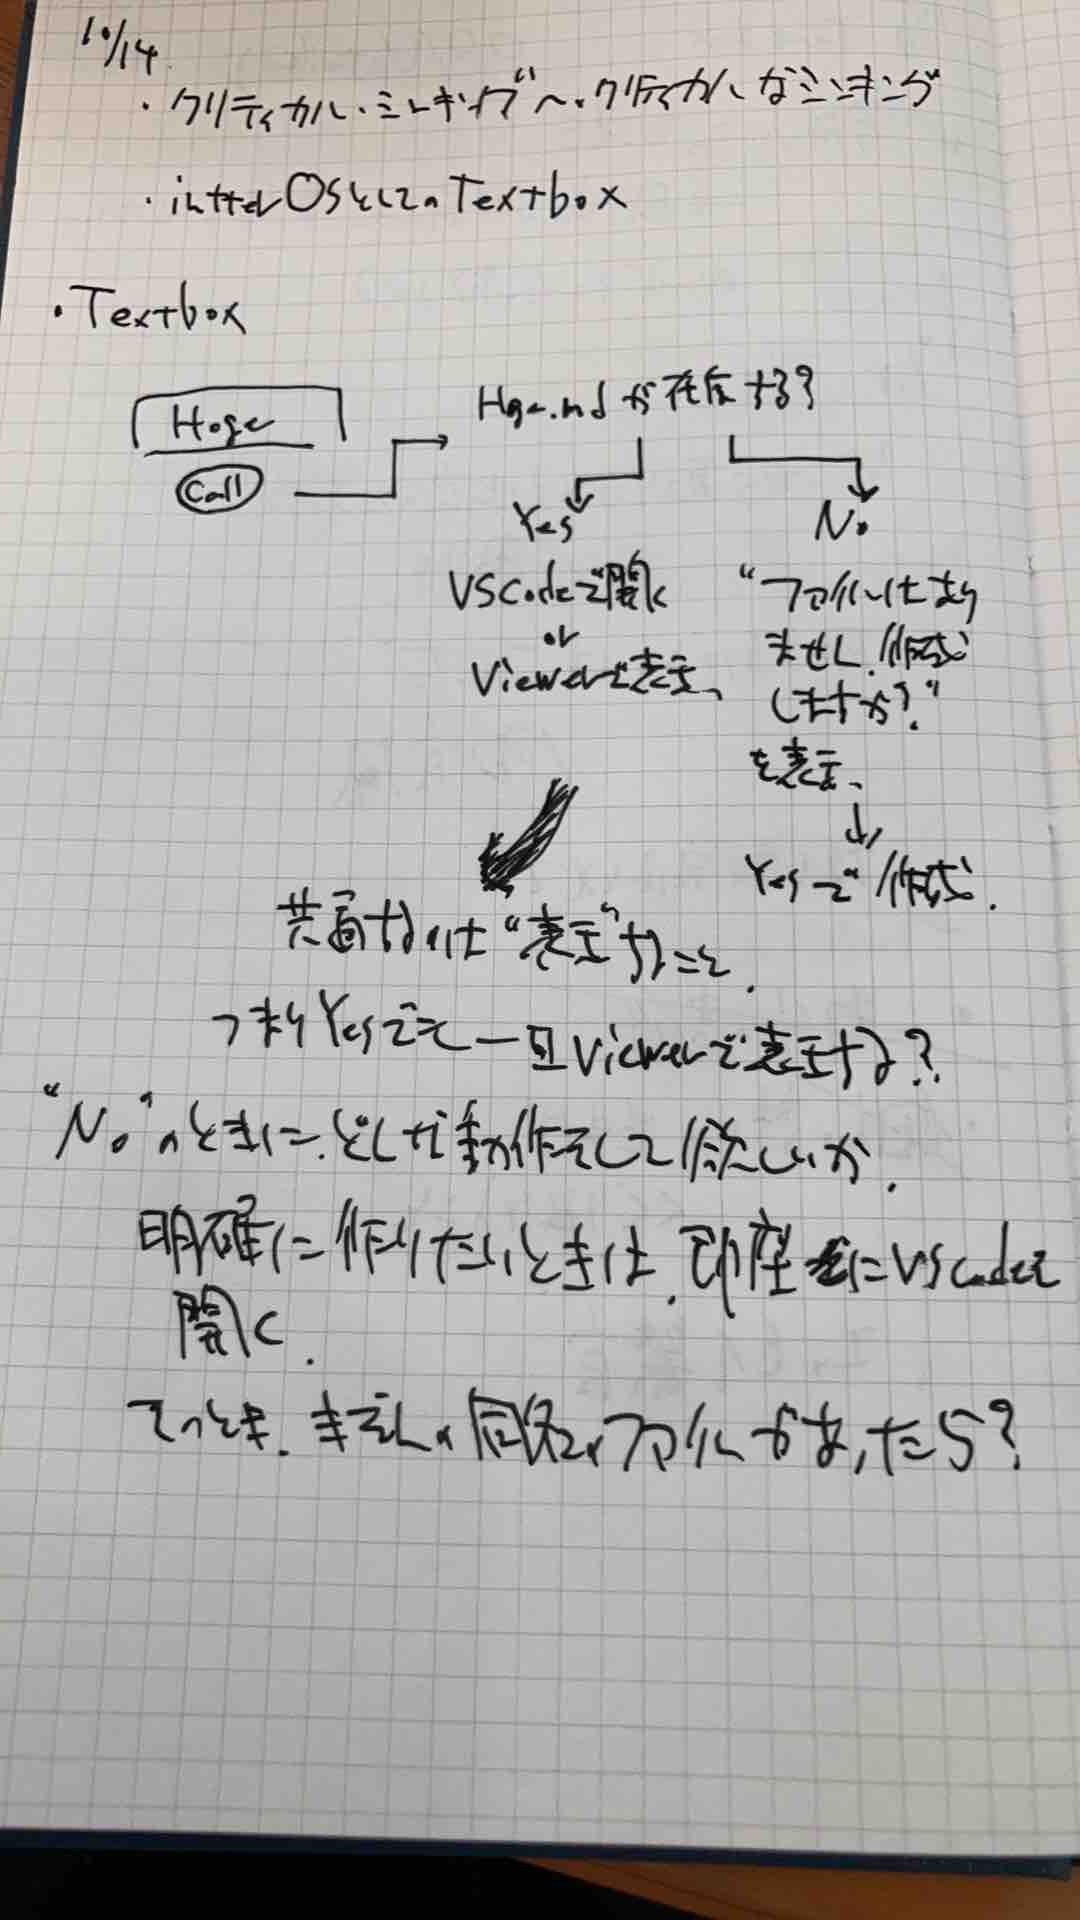 10/14
・クリティカル・シンキング へ・クリティカルなシンキング
・OSとしてのTextbox
・Textbox
Hoge
Call
Hoge.mdが存在する?
Yes
No
VSCodeで開く
or
Viewerで表示、
“ファイルはあり
ません.作成
しますか?”
を表示、
Yesで作成.
共通するのは“表示”すること.
つまりYesでも一旦Viewerで表示する?
“No”のときに、どんな動作をして欲しいか.
明確に作りたいときは、即座にVSCodeを
開く.
そのとき、既存の同名のファイルがあったら?